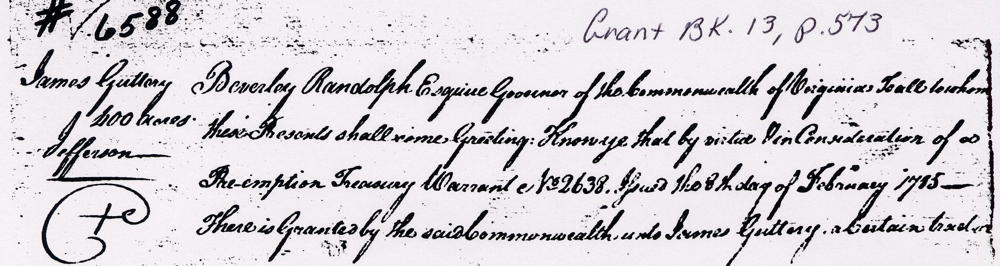 # 16588
Grant BK. 13, p. 573
James Guttery
400 acres
Jefferson
Beverley Randolph Esquire Governor of the Commonwealth of Virginia To all to whom
these Presents shall come Greeting: Know ye that by virtue & in Consideration of a
Pre-emption Treasury Warrant No 2638. Issued the 8th day of February 1785 —
There is Granted by the said Commonwealth unto James Guttery. a Certain tract